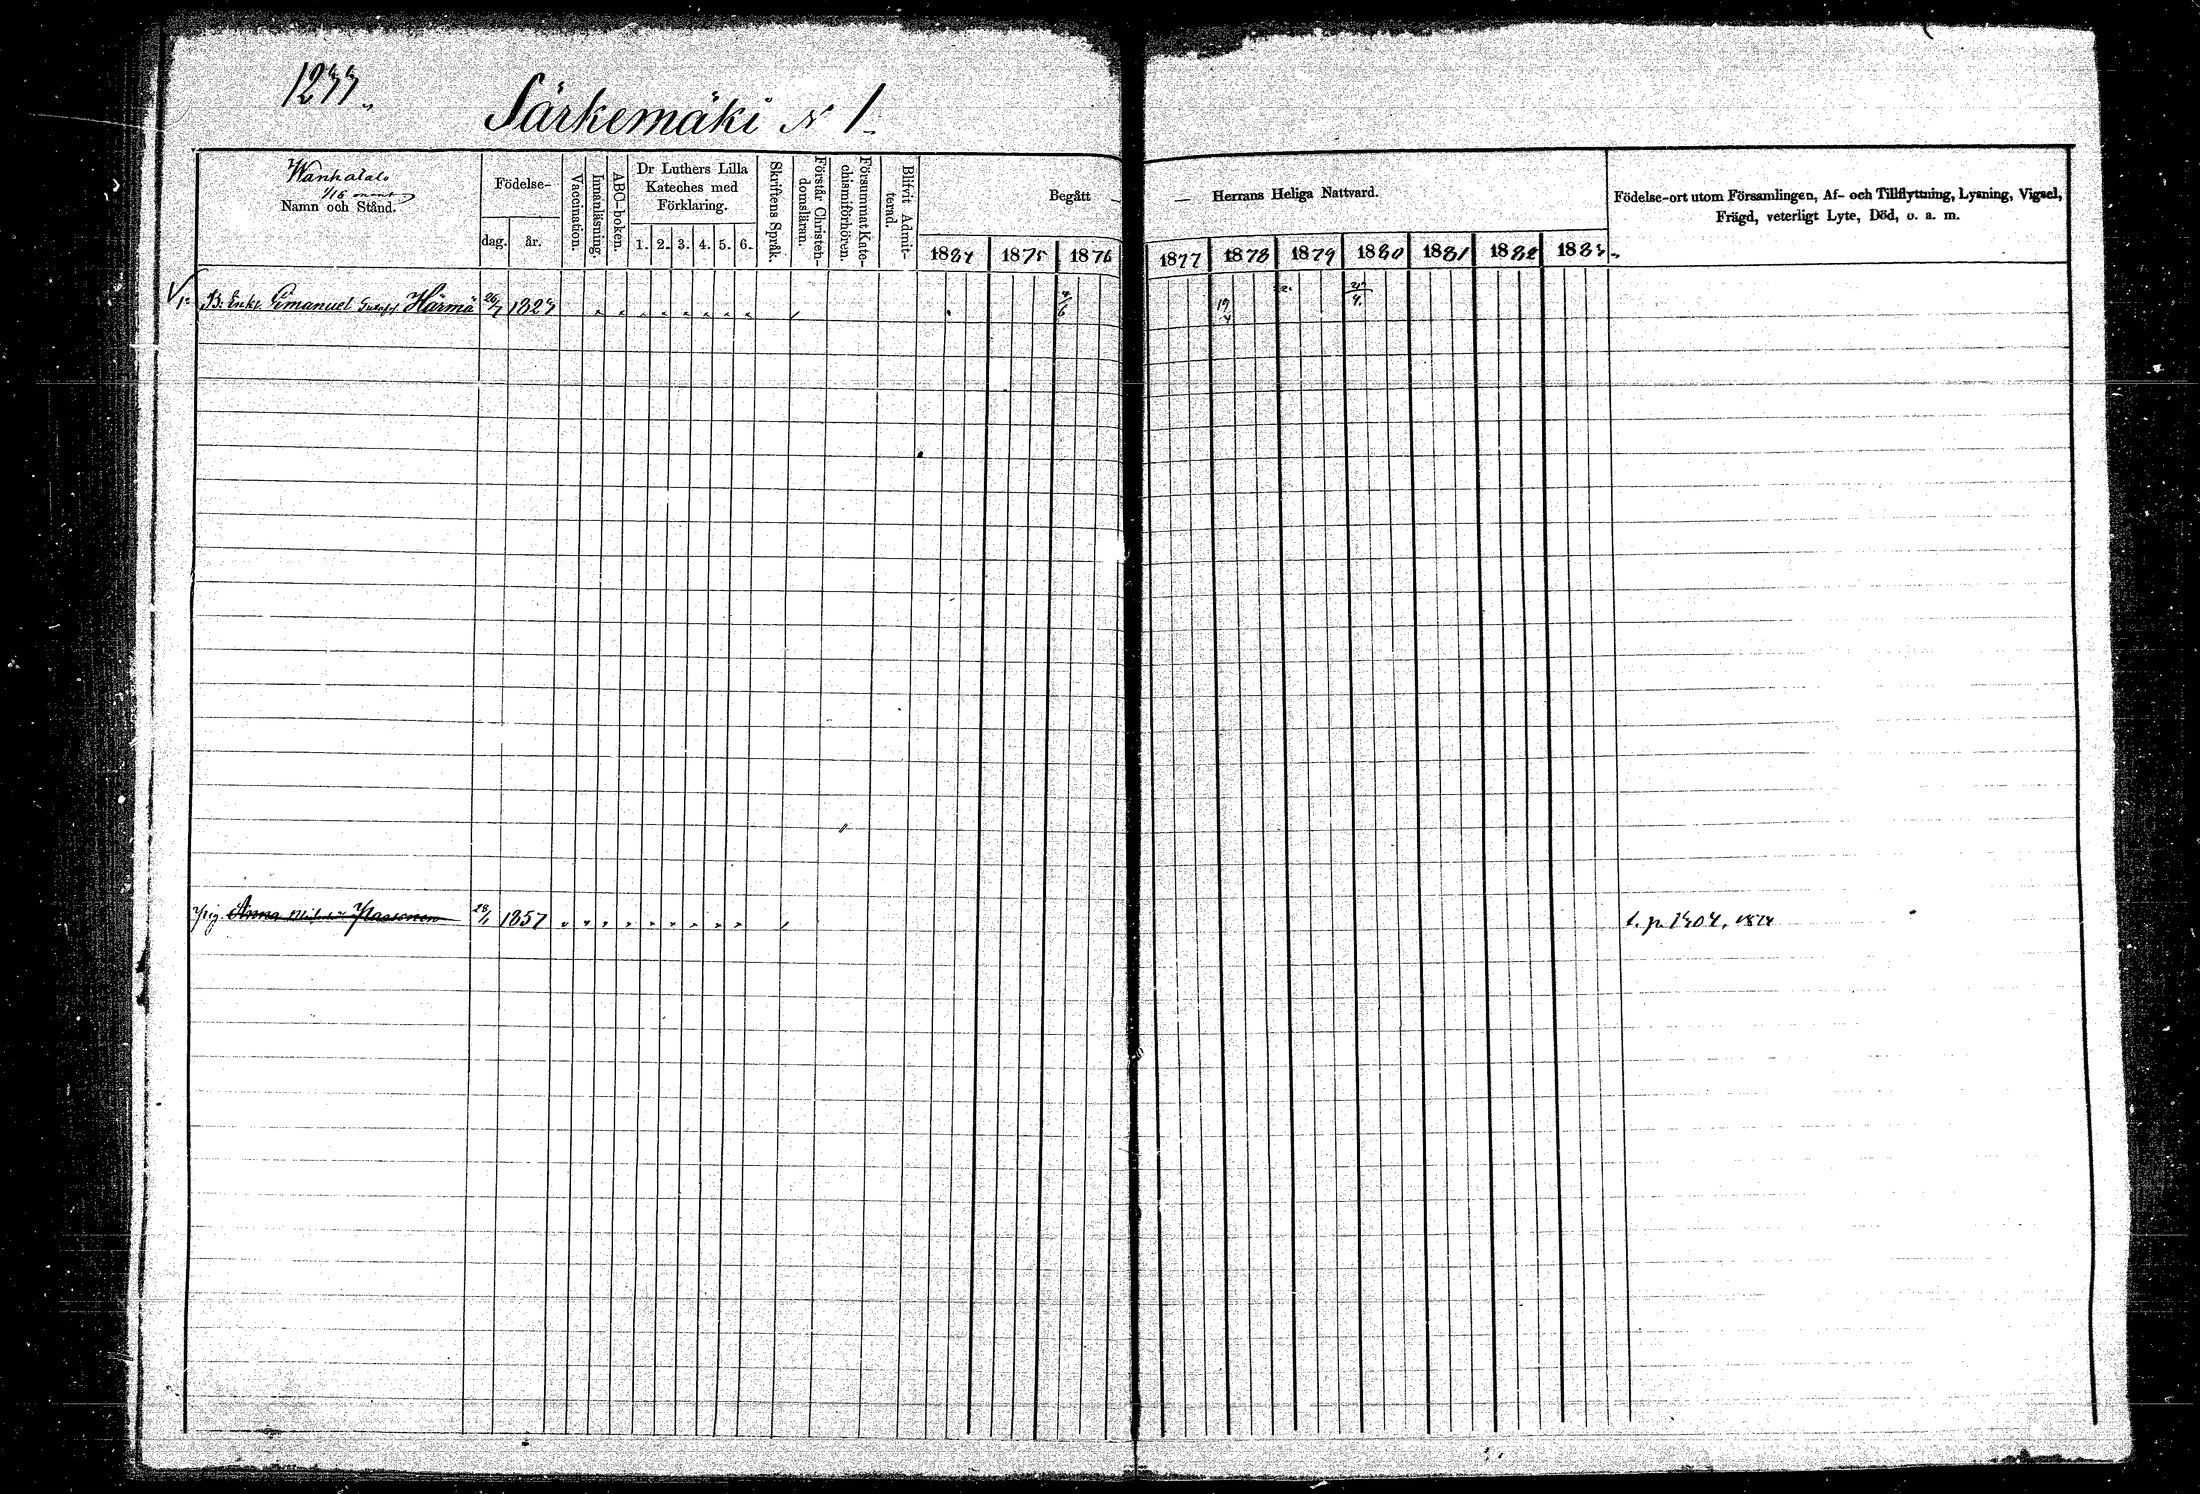 1233.
Särkemäki N 1
Wanhatalo
1/16 mant
Namn och Stånd.
Födelse-
dag. år.
Vaccination.
Innanläsning.
ABC-boken.
Dr Luthers Lilla
Kateches med
Förklaring.
1. 2. 3. 4. 5. 6.
Skriftens Språk.
Förstår Christen-
domsläran.
Försummat Kate-
chismiförhören.
Blifvit Admit-
terad.
Begått — — Herrans Heliga Nattvard.
1875 1876 1877 1878 1879 1880 1881 1882 1883
Födelse-ort utom Församlingen, Af- och Tillflyttning, Lysning, Vigsel,
Frägd, veterligt Lyte, Död, o. a. m.
B. Enkl. Emanuel Härmä 26/7 1823 4/6 19/4
Pig. Anna 28/1 1857